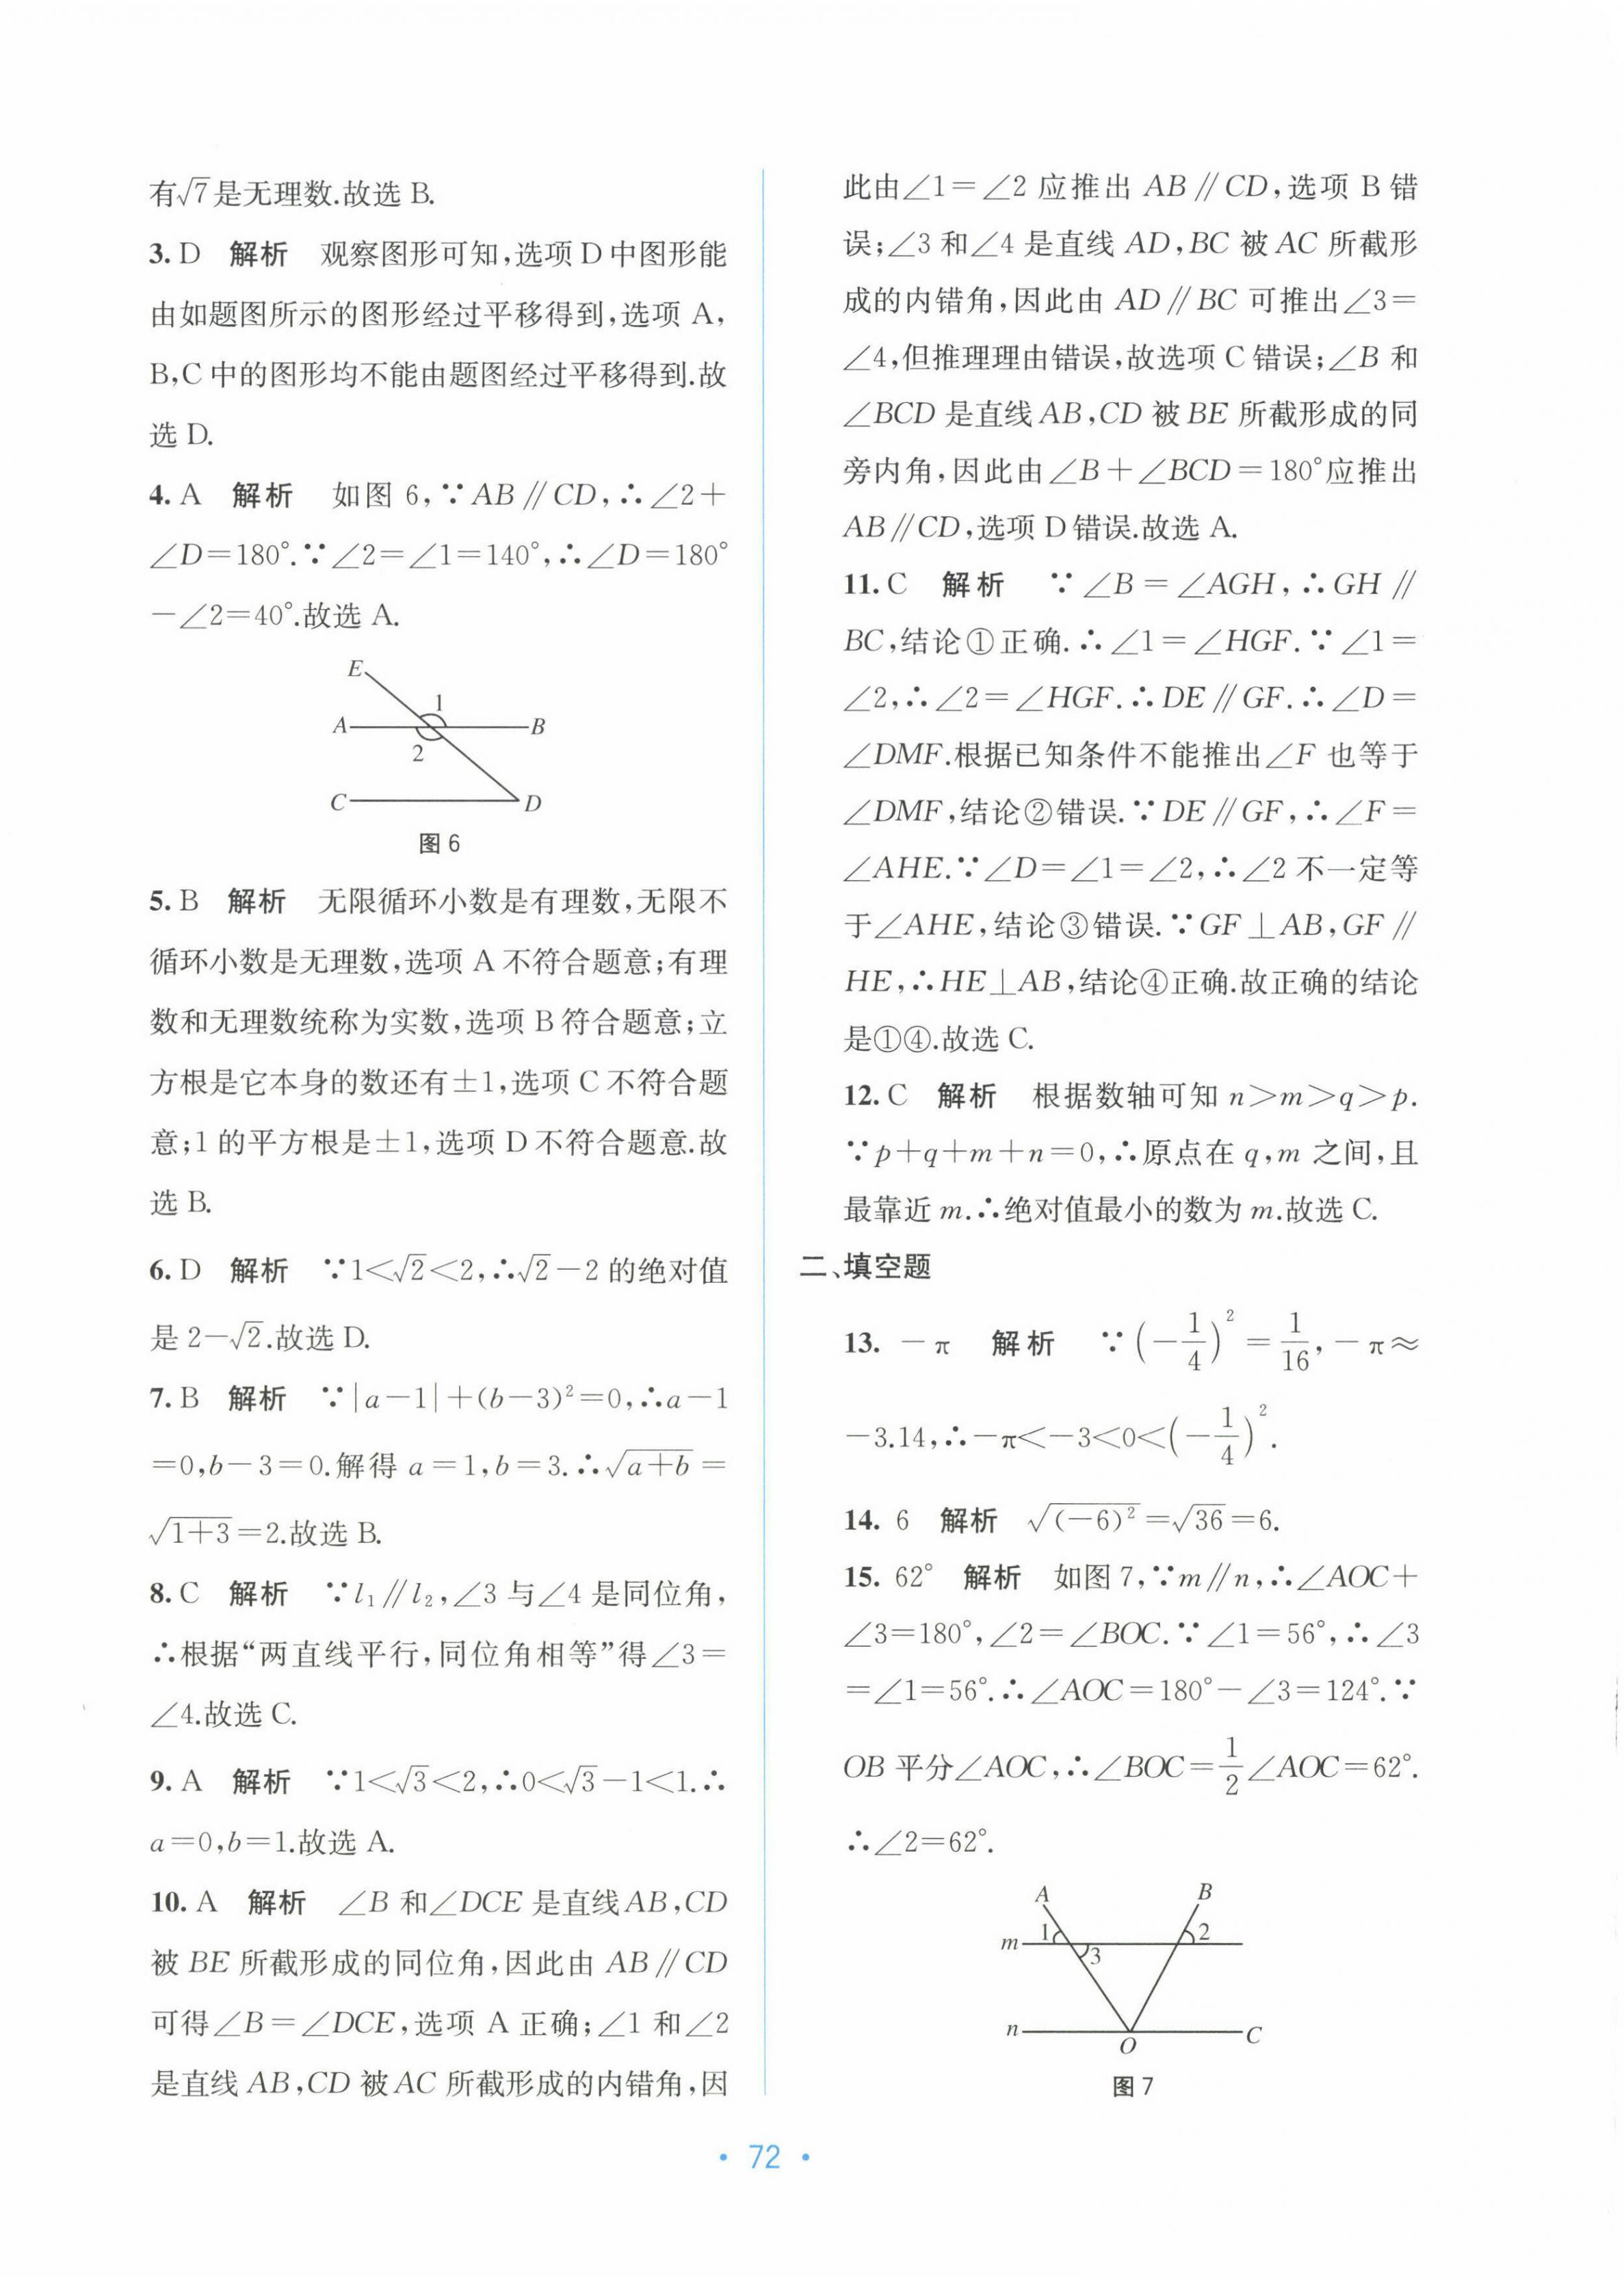 有√7是无理数.故选 B.
3. D　解析　观察图形可知,选项 D 中图形能
由如题图所示的图形经过平移得到,选项 A,
B,C 中的图形均不能由题图经过平移得到.故
选 D.
4. A　解析　如图 6,∵AB∥CD,∴∠2+
∠D=180°.∵∠2=∠1=140°,∴∠D=180°
-∠2=40°.故选 A.
E
1
A
B
2
C
D
图 6
5. B　解析　无限循环小数是有理数,无限不
循环小数是无理数,选项 A 不符合题意;有理
数和无理数统称为实数,选项 B 符合题意;立
方根是它本身的数还有±1,选项 C 不符合题
意;1 的平方根是±1,选项 D 不符合题意.故
选 B.
6. D　解析　∵1<√2<2,∴√2-2 的绝对值
是 2-√2.故选 D.
7. B　解析　∵|a-1|+(b-3)²=0,∴a-1
=0,b-3=0.解得 a=1,b=3.∴√(a+b)=
√(1+3)=2.故选 B.
8. C　解析　∵l₁∥l₂,∠3 与∠4 是同位角,
∴根据“两直线平行,同位角相等”得∠3=
∠4.故选 C.
9. A　解析　∵1<√3<2,∴0<√3-1<1.∴
a=0,b=1.故选 A.
10. A　解析　∠B 和∠DCE 是直线 AB,CD
被 BE 所截形成的同位角,因此由 AB∥CD
可得∠B=∠DCE,选项 A 正确;∠1 和∠2
是直线 AB,CD 被 AC 所截形成的内错角,因
此由∠1=∠2 应推出 AB∥CD,选项 B 错
误;∠3 和∠4 是直线 AD,BC 被 AC 所截形
成的内错角,因此由 AD∥BC 可推出∠3=
∠4,但推理理由错误,故选项 C 错误;∠B 和
∠BCD 是直线 AB,CD 被 BE 所截形成的同
旁内角,因此由∠B+∠BCD=180°应推出
AB∥CD,选项 D 错误.故选 A.
11. C　解析　∵∠B=∠AGH,∴GH∥
BC,结论①正确.∴∠1=∠HGF.∵∠1=
∠2,∴∠2=∠HGF.∴DE∥GF.∴∠D=
∠DMF.根据已知条件不能推出∠F 也等于
∠DMF,结论②错误.∵DE∥GF,∴∠F=
∠AHE.∵∠D=∠1=∠2,∴∠2 不一定等
于∠AHE,结论③错误.∵GF⊥AB,GF∥
HE,∴HE⊥AB,结论④正确.故正确的结论
是①④.故选 C.
12. C　解析　根据数轴可知 n>m>q>p.
∵p+q+m+n=0,∴原点在 q,m 之间,且
最靠近 m.∴绝对值最小的数为 m.故选 C.
二、填空题
13. -π　解析　∵(-1/4)²=1/16,-π≈
-3.14,∴-π<-3<0<(-1/4)².
14. 6　解析　√((-6)²)=√36=6.
15. 62°　解析　如图 7,∵m∥n,∴∠AOC+
∠3=180°,∠2=∠BOC.∵∠1=56°,∴∠3
=∠1=56°.∴∠AOC=180°-∠3=124°.∵
OB 平分∠AOC,∴∠BOC=1/2∠AOC=62°.
∴∠2=62°.
A
B
m
1
2
3
n
O
C
图 7
· 72 ·